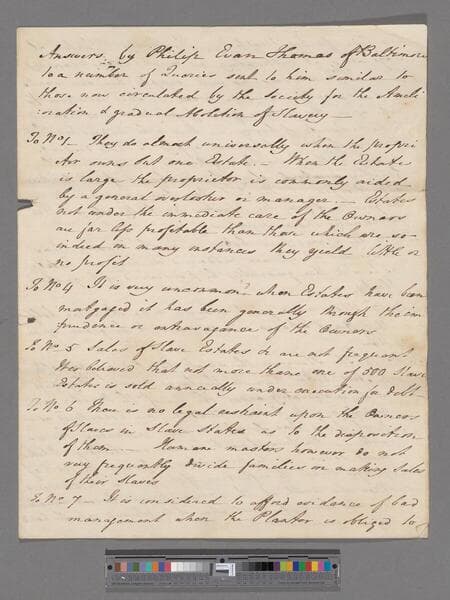 Answers by Philip Evan Thomas of Baltimore
to a number of Queries sent to him similar to
those now circulated by the Society for the Ameli
oration & gradual Abolition of Slavery —
To No 1 — They do almost universally when the propri
etor owns but one Estate. — When the Estate
is large the proprietor is commonly aided
by a general overlooker or manager. — Estates
not under the immediate care of the Owners
are far less profitable than those which are so
indeed in many instances they yield little or
no profit
To No 4 It is very uncommon when Estates have been
mortgaged it has been generally though the im
prudence or extravagance of the Owners
To No 5 Sales of Slave Estates are not frequent
It is believed that not more than one of 500 Slave
Estates is sold annually under execution for debt
To No 6 There is no legal restraint upon the Owners
of Slaves in Slave States as to the disposition
of them — Humane masters however do not
very frequently divide families in making Sales
of their Slaves
To No 7 — It is considered to afford evidence of bad
management when the Planter is obliged to